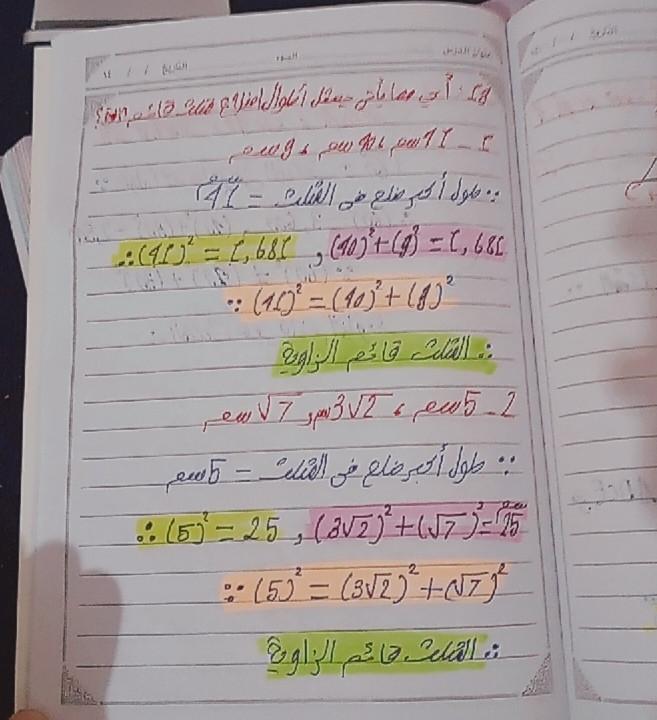 عنوان الدرس اليوم التاريخ / / ١٤
أي مما يأتي يمثل أطوال أضلاع مثلث قائم
1 - 41سم ، 40سم ، 9سم
∵ طول أكبر ضلع في المثلث = 41سم
∴ (41)² = 1,681 , (40)²+(9)² = 1,681
∵ (41)² = (40)²+(9)²
∴ المثلث قائم الزاوية
2 - 5سم ، 3√2سم ، √7سم
∵ طول أكبر ضلع في المثلث = 5سم
∴ (5)² = 25 , (3√2)²+(√7)² = 25
∵ (5)² = (3√2)²+(√7)²
∴ المثلث قائم الزاوية